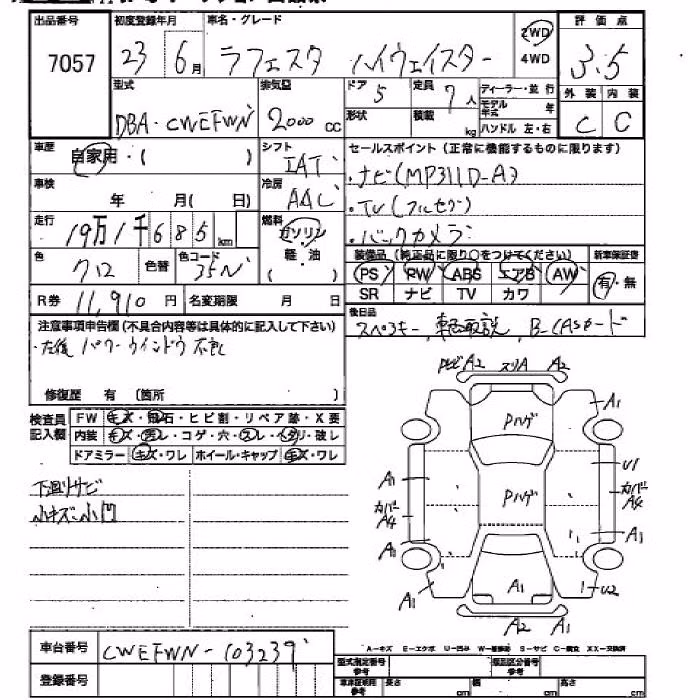 出品番号 初度登録年月 車名・グレード 2WD 評価点
7057 23 6月 ラフェスタ ハイウェイスター 4WD 3.5
型式 排気量 ドア 5 定員 7人 ディーラー・並行 外装 内装
DBA-CWEFWN 2000cc 形状 積載 kg モデル年式 年 C C
ハンドル 左・右
車歴 自家用・( ) シフト IAT セールスポイント(正常に機能するものに限ります)
車検 年 月( 日) 冷房 AAC ・ナビ(MP311D-A)
・TV(フルセグ)
走行 19万1千685km 燃料 ガソリン ・バックカメラ
軽・油
( )
色 クロ 色替 色コード 装備品(純正品に限り○をつけてください) 新車保証書
PS PW ABS エアB AW 有・無
R券 11,910円 名変期限 月 日 SR ナビ TV カワ
注意事項申告欄(不具合内容等は具体的に記入して下さい) 後日品
スペアキー、取説、B-CASカード
・左後 パワーウインドウ 不良
修復歴 有 (箇所 )
検査員記入欄 FW キズ・飛石・ヒビ割・リペア跡・X要
内装 キズ・・コゲ・穴・スレ・・破レ
ドアミラー キズ・ワレ ホイール・キャップ キズ・ワレ
下廻リサビ
小キズ小凹
トビA2 スリA A2
A1
Pハゲ
A1 U1
カバーA4 Pハゲ カバーA4
A1 A1
A1 A1 U2
A2 A1
車台番号 CWEFWN-103239
A-キズ E-エクボ U-凹み S-サビ C-腐食 XX-交換済
登録番号 型式指定番号参考 類別区分番号参考
車車証明用参考 長さ cm 幅 cm 高さ cm